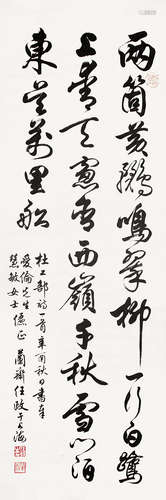 兩箇黃鸝鳴翠柳一行白鷺
上青天窻含西嶺千秋雪門泊
東吳萬里船
杜工部詩一首辛酉秋日書奉
愛倫先生
慧敏女士儷正 蘭齋任政于上海